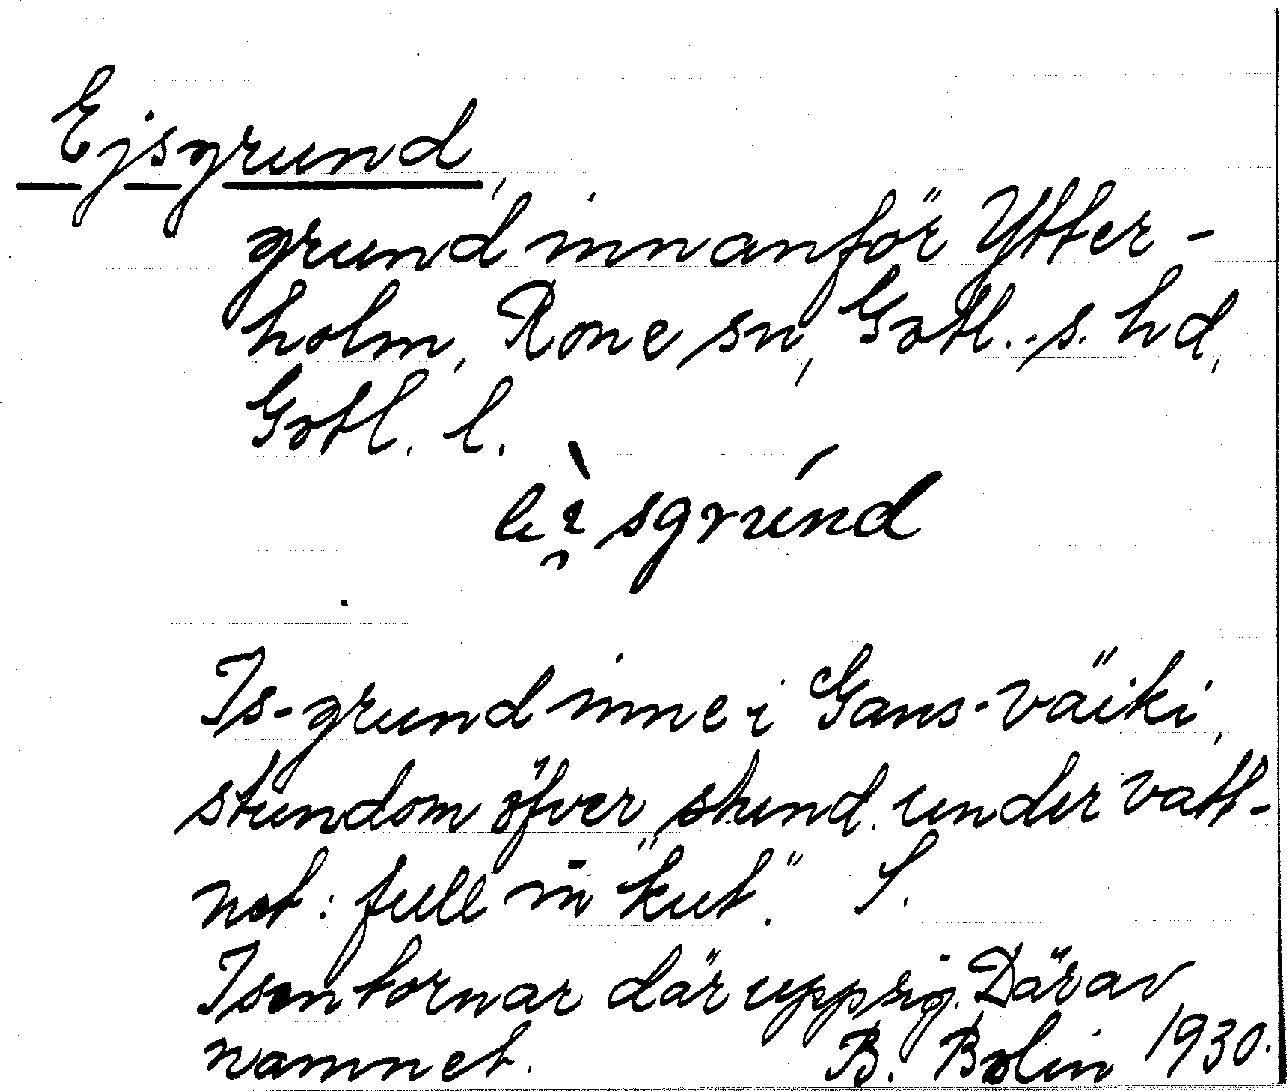 Ejsgrund,
grund innanför Ytter-
holm, Rone sn, Gotl. s. hd,
Gotl. l.
sgrúnd
Is-grund inne i Gans-väiki,
stundom öfver, stund. under vatt-
net: full m "kut". S.
Isen tornar där upp sig. Därav
namnet. B. Bolin 1930.